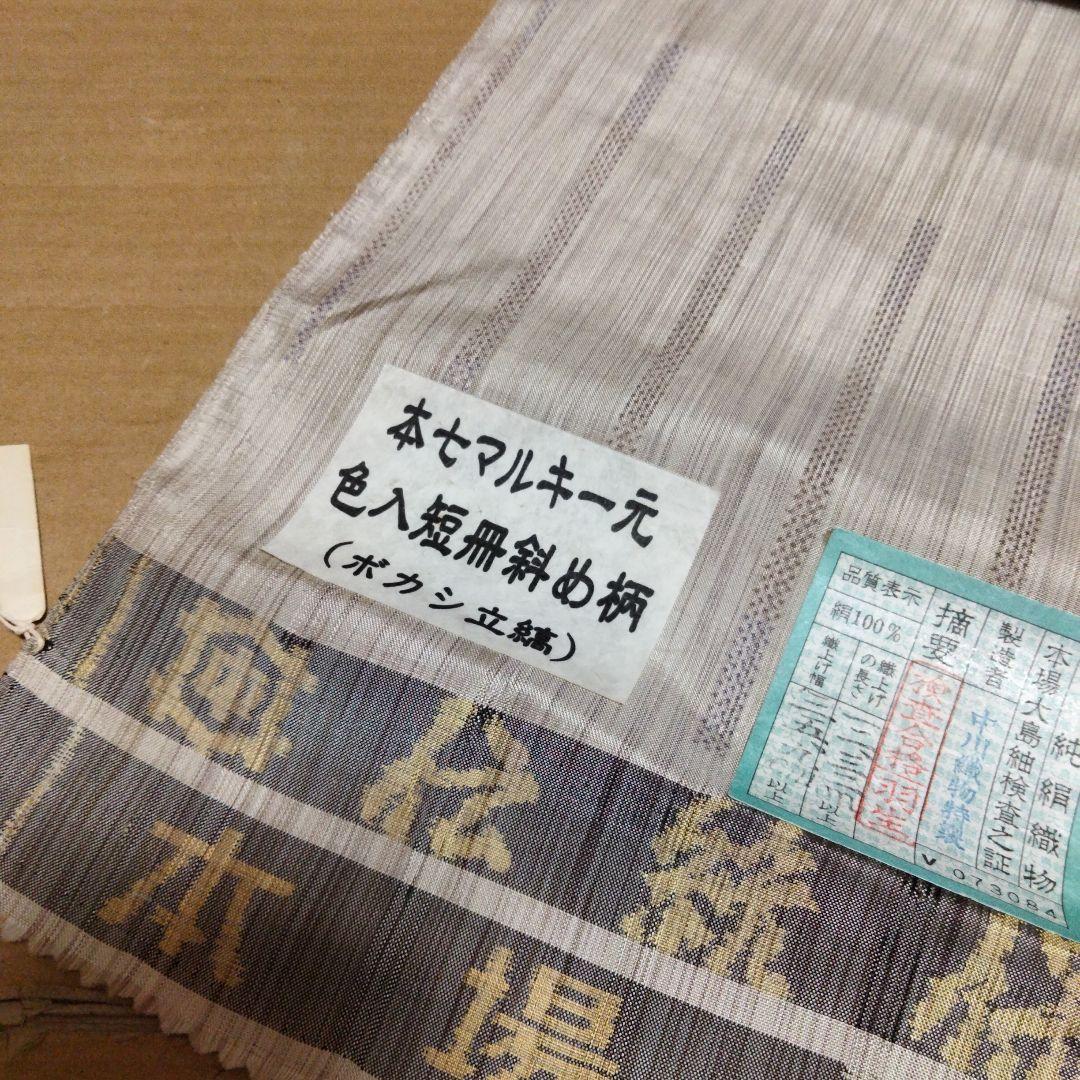 本七マルキー元
色入短冊斜め柄
（ボカシ立縞）
純絹織物
本場大島紬検査之証
製造者
中川織物特製
摘要
検査合格
織上げの長さ
以上
品質表示
絹100%
織上げ幅
以上
V 073084
本場